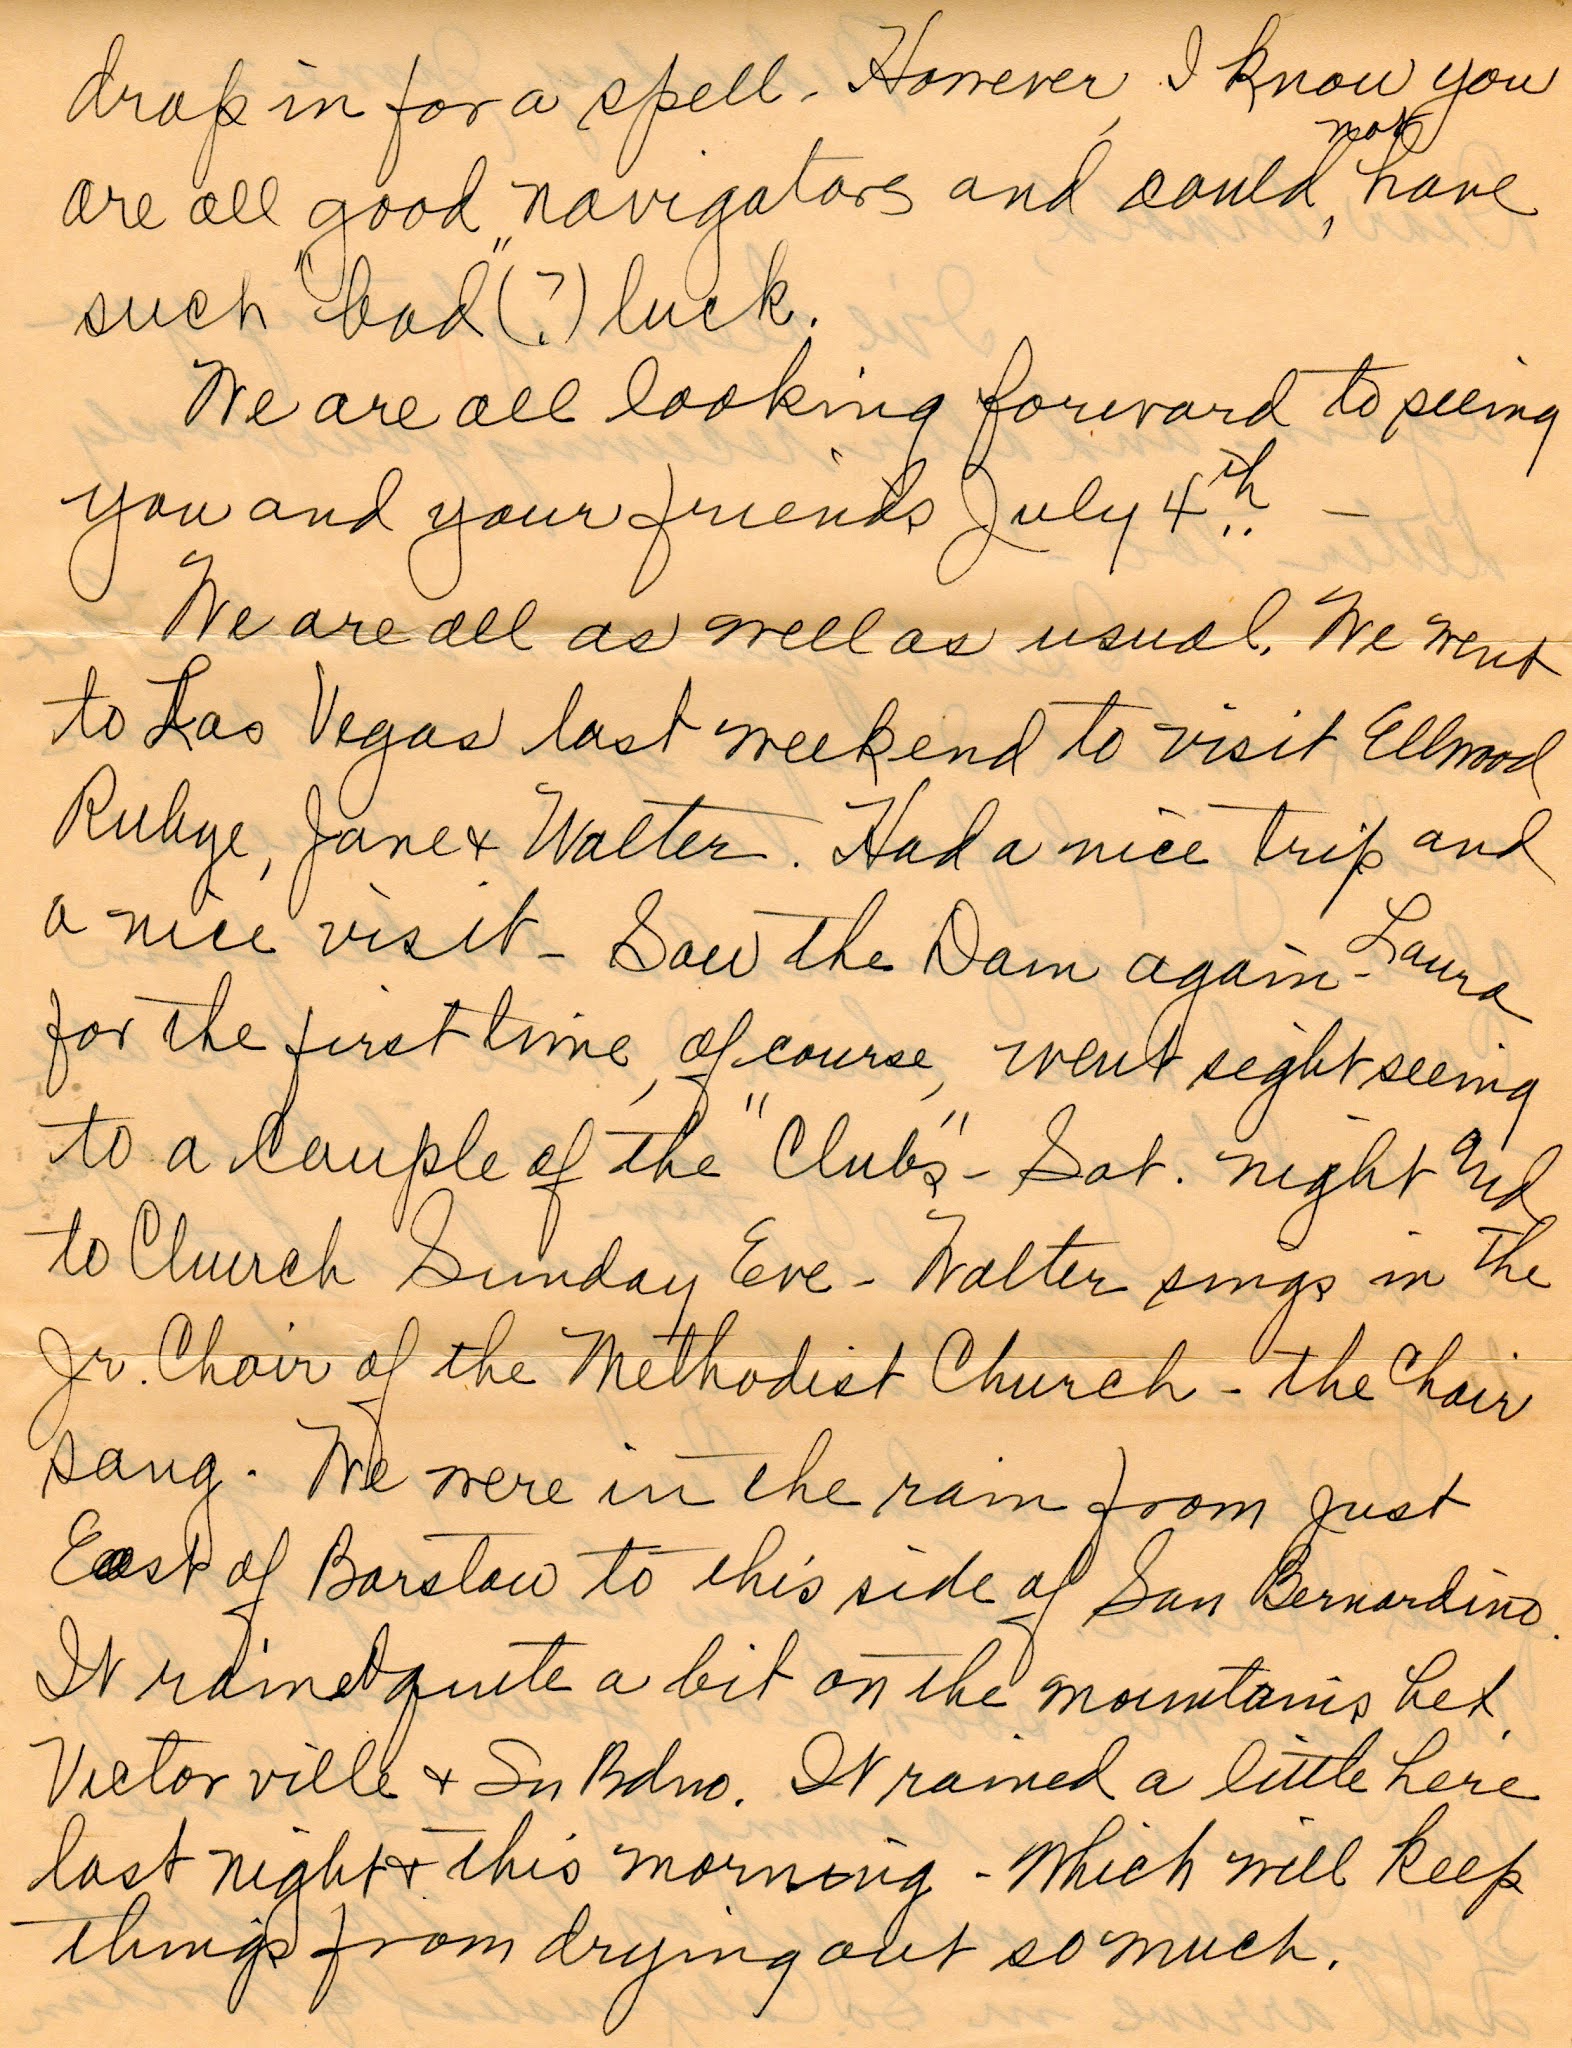 drop in for a spell - However, I know you
are all good navigators and could not have
such "bad" (?) luck.
We are all looking forward to seeing
you and your friends July 4th. -
We are all as well as usual. We went
to Las Vegas last weekend to visit Ellwood
Rubye, Jane & Walter. Had a nice trip and
a nice visit - Saw the Dam again - Laura
for the first time, of course, went sight seeing
to a couple of the "Clubs" - Sat. night and
to Church Sunday Eve - Walter sings in the
Jr. Choir of the Methodist Church - the Choir
sang. We were in the rain from just
East of Barstow to this side of San Bernardino.
It rained quite a bit on the mountains bet.
Victorville & Sn Bdno. It rained a little here
last night & this morning - Which will keep
things from drying out so much.